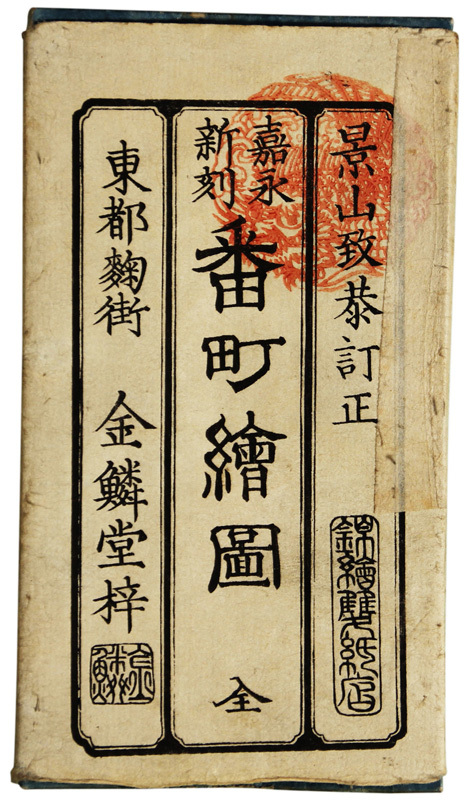 景山致恭訂正
錦繪雙紙店
嘉永
新刻
番町繪圖
全
東都麴街 金鱗堂梓